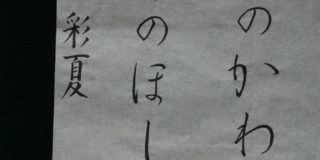 のかわ
のほし
彩夏